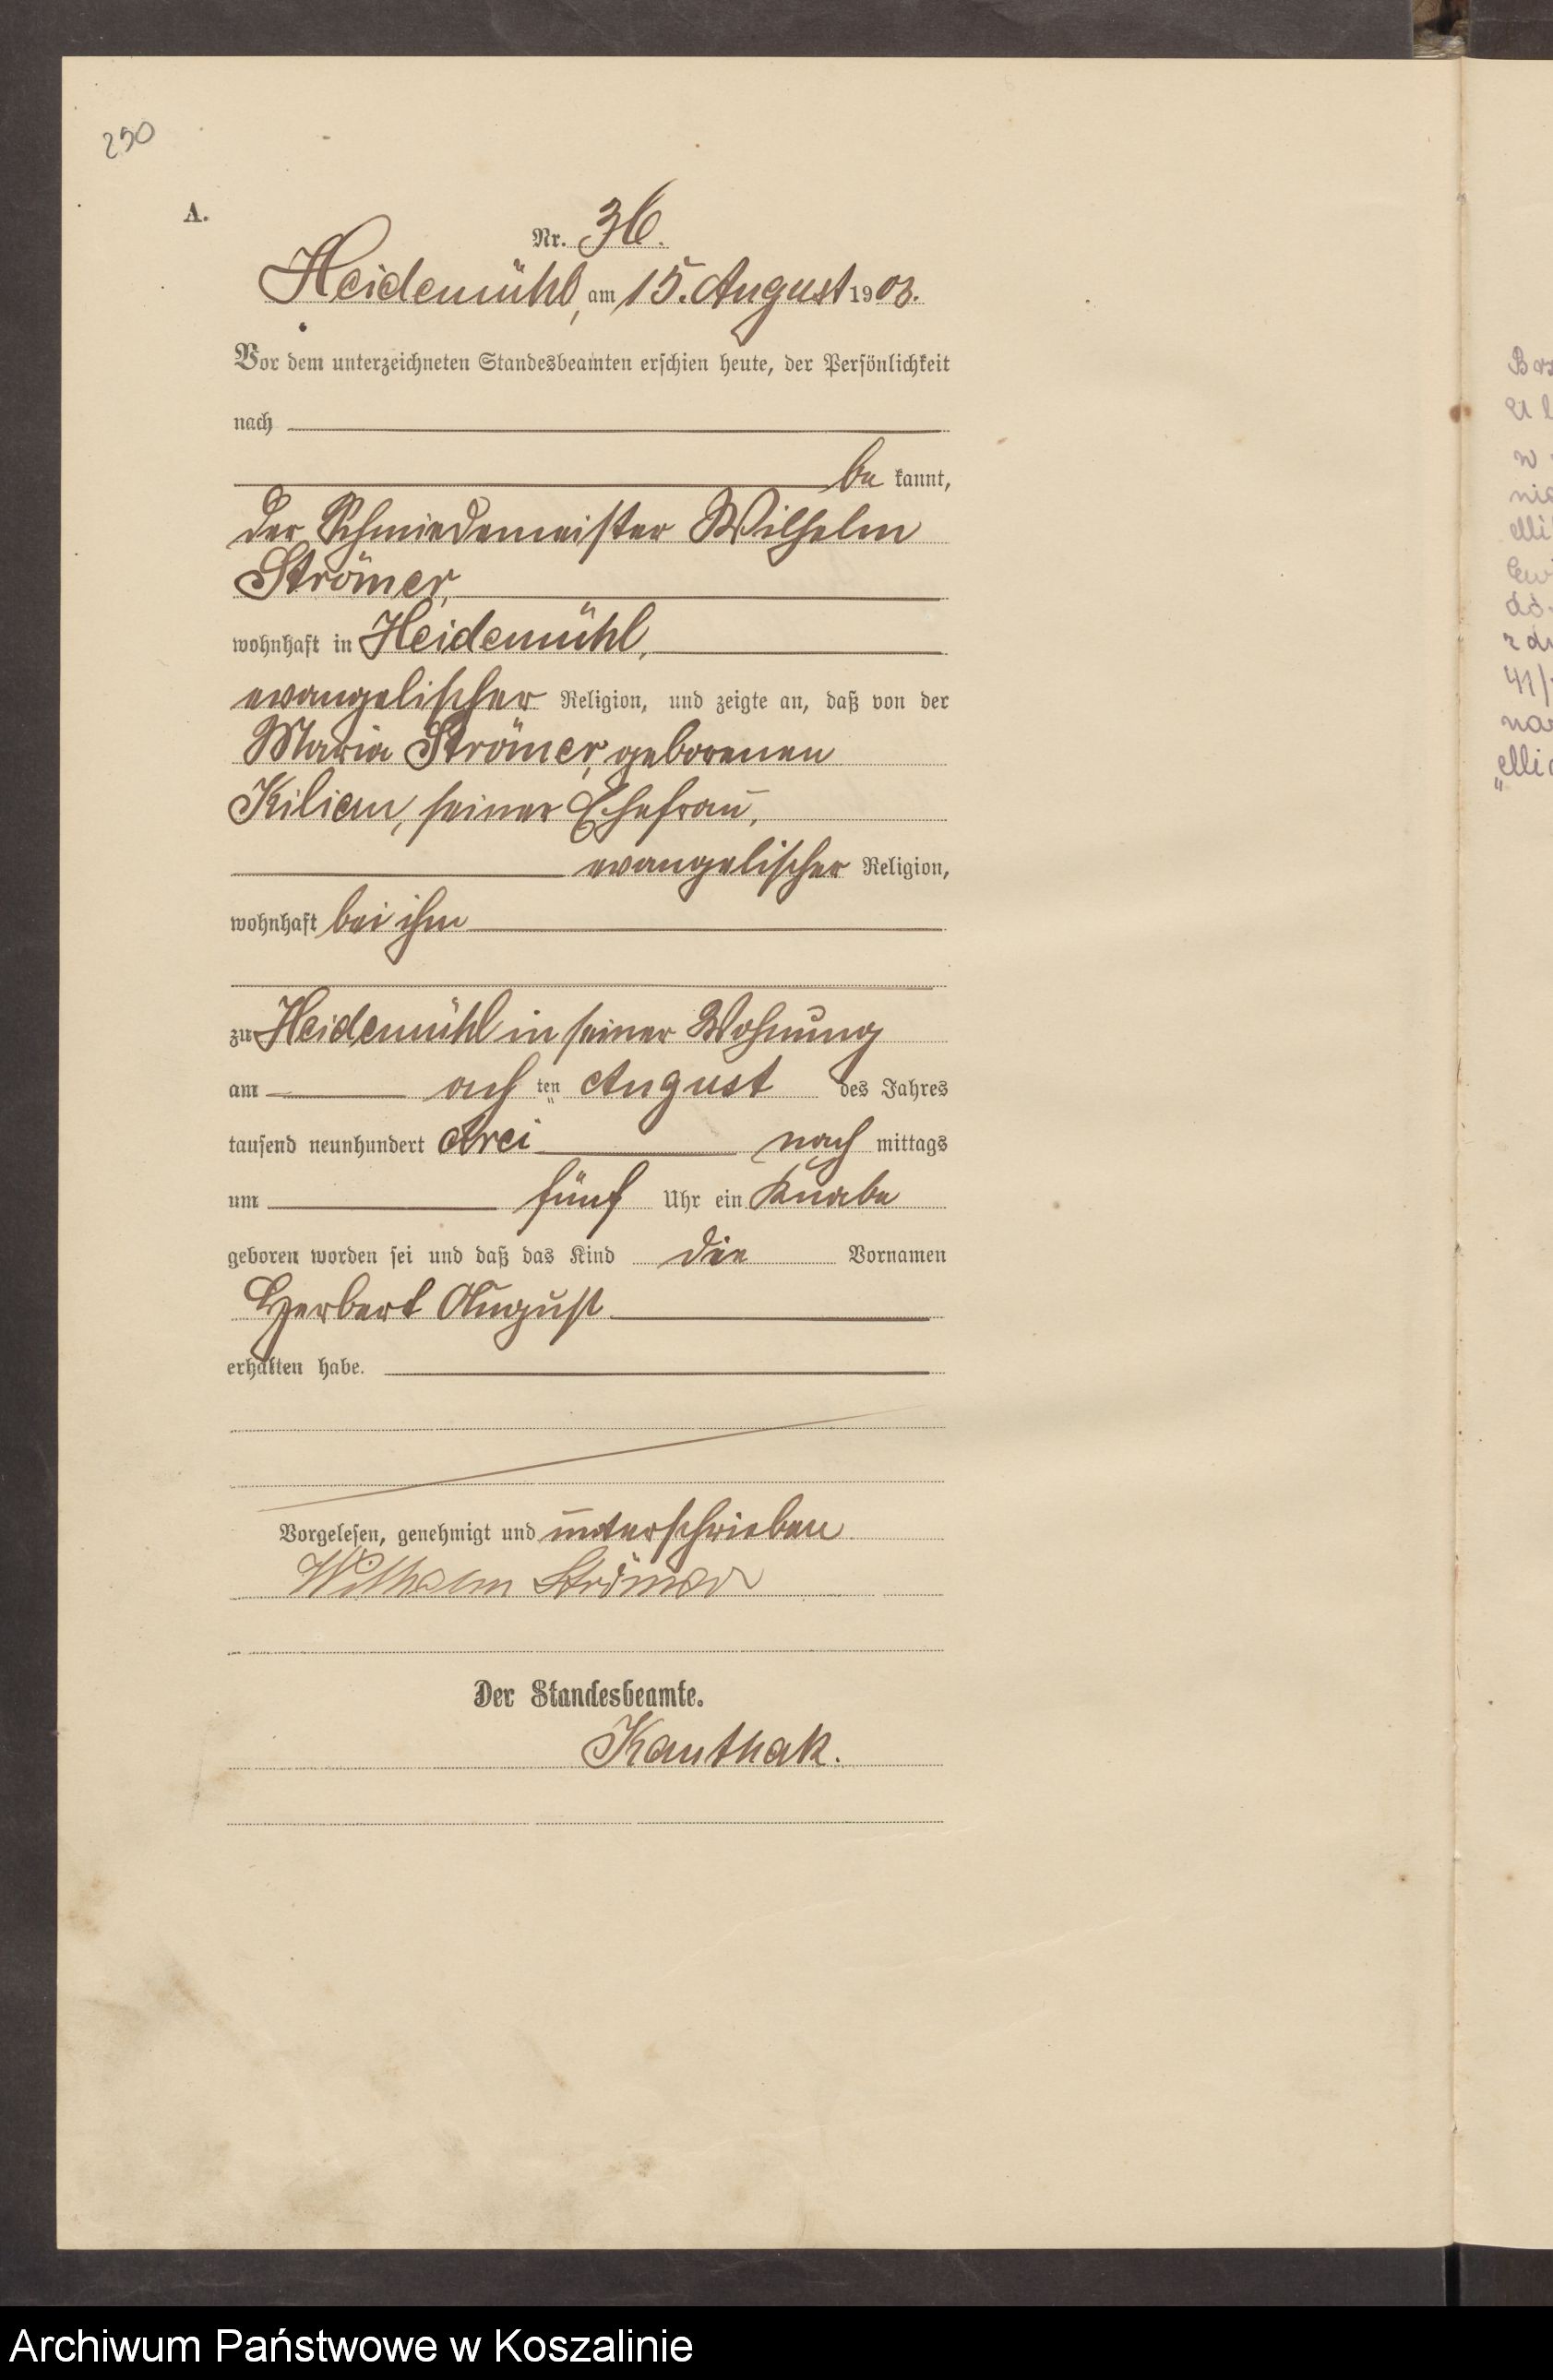 250
A.
Nr. 36.
Heidemühl, am 15. August 1903.
Vor dem unterzeichneten Standesbeamten erschien heute, der Persönlichkeit
nach
be kannt,
der Schmiedemeister Wilhelm
Strömer,
wohnhaft in Heidemühl,
evangelischer Religion, und zeigte an, daß von der
Maria Strömer, geborenen
Kilian, seiner Ehefrau,
evangelischer Religion,
wohnhaft bei ihm
zu Heidemühl in seiner Wohnung
am ach ten August des Jahres
tausend neunhundert drei nach mittags
um fünf Uhr ein Knabe
geboren worden sei und daß das Kind die Vornamen
Herbert August
erhalten habe.
Vorgelesen, genehmigt und unterschrieben
Wilhelm Strömer
Der Standesbeamte.
Kanthak.
Archiwum Państwowe w Koszalinie